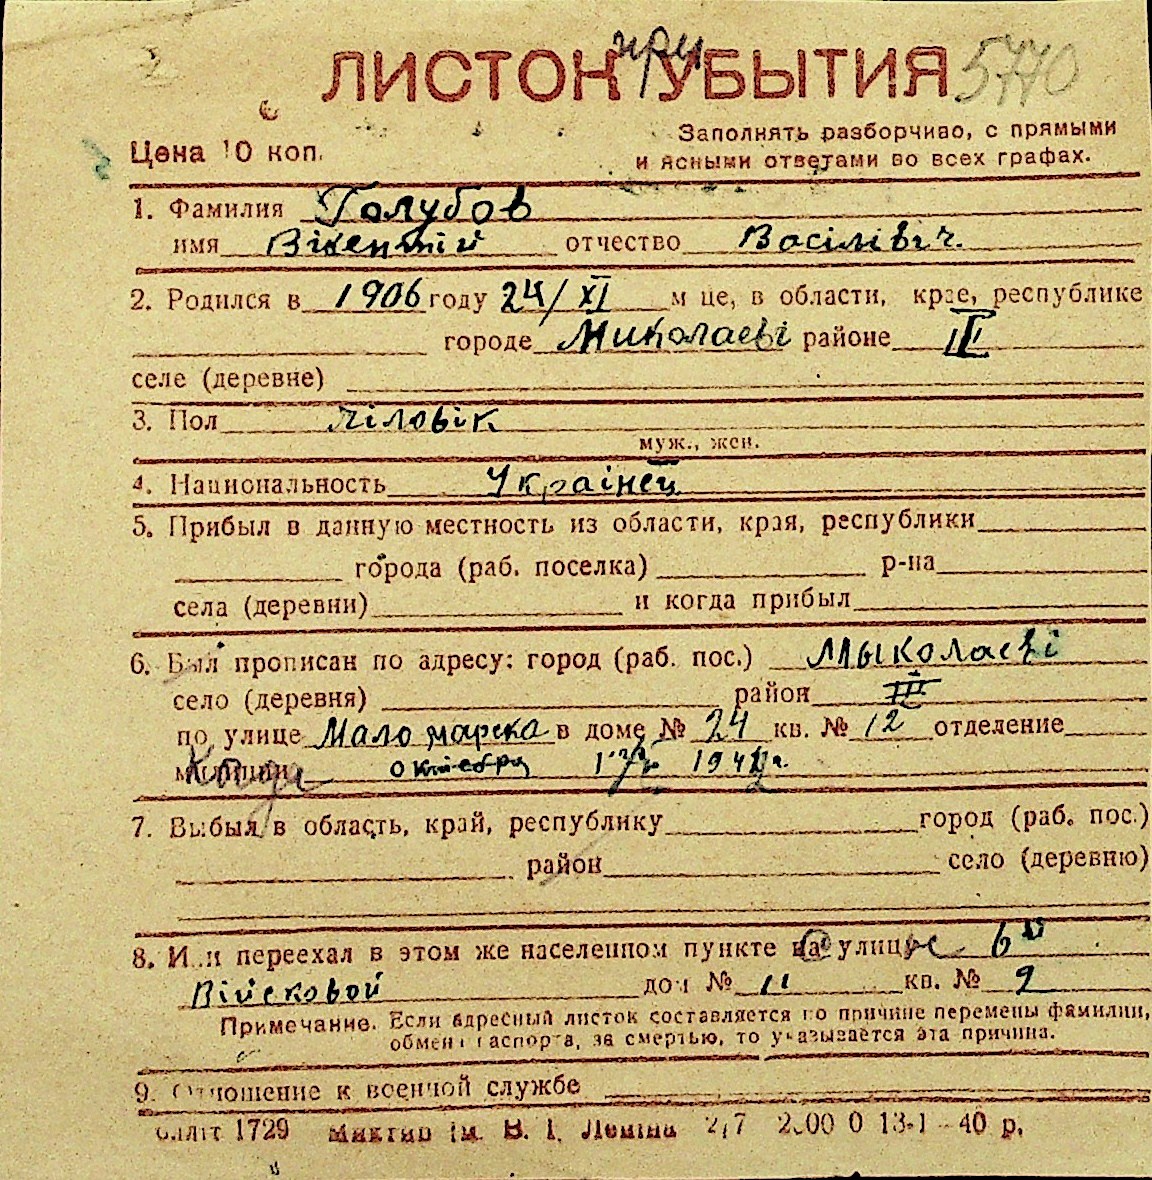 при
ЛИСТОК УБЫТИЯ 5770
Цена 10 коп.
Заполнять разборчиво, с прямыми
и ясными ответами во всех графах.
1. Фамилия Голубов
имя Вікентій отчество Васілівіч.
2. Родился в 1906 году 24/XI м це, в области, крае, республике
городе Миколаеві районе III
селе (деревне)
3. Пол чіловік
муж., жен.
4. Национальность Українец
5. Прибыл в данную местность из области, края, республики
города (раб. поселка) р-на
села (деревни) и когда прибыл
6. Был прописан по адресу: город (раб. пос.) Мыколаеві
село (деревня) район III
по улице Мало морска в доме № 24 кв. № 12 отделение
милиции октебра 194
7. Выбыл в область, край, республику город (раб. пос.)
район село (деревню)
8. Или переехал в этом же населенном пункте на улицу 6
Війсковой дом № 11 кв. № 9
Примечание. Если адресный листок составляется по причине перемены фамилии,
обмена паспорта, за смертью, то указывается эта причина.
9. Отношение к военной службе
1729 ім. В. І. Леніна 40 р.